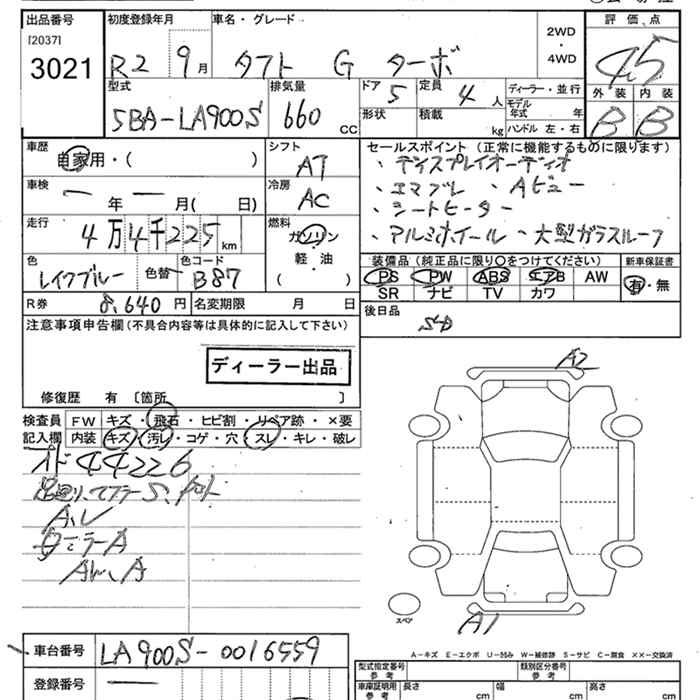 出品番号 初度登録年月 車名・グレード 評価点
[2037]
3021 R2 9月 タフト G ターボ 2WD・4WD 4.5
型式 排気量 ドア 5 定員 4人 ディーラー・並行 外装 内装
5BA-LA900S 660 CC 形状 積載 kg モデル年式 年 B B
ハンドル 左・右
車歴 シフト セールスポイント(正常に機能するものに限ります)
自家用・( ) AT ・ディスプレイオーディオ
車検 冷房 ・エマブレ ・Aビュー
― 年 ― 月( 日) AC ・シートヒーター
走行 燃料 ・アルミホイール ・大型ガラスルーフ
4万4千225km ガソリン
軽・油
( )
装備品(純正品に限り○をつけてください) 新車保証書
色 色替 色コード PS PW ABS エアB AW 有・無
レイクブルー B87 SR ナビ TV カワ
R券 8,640円 名変期限 月 日 後日品
注意事項申告欄(不具合内容等は具体的に記入して下さい)
ディーラー出品
修復歴 有 〔箇所 〕
A2
検査員 FW キズ・飛石・ヒビ割・リペア跡・×要
記入欄 内装 キズ・汚レ・コゲ・穴・スレ・キレ・破レ
44226
スペア
A1
車台番号 LA900S-0016559
A-キズ E-エクボ U-凹み W-補修跡 S-サビ C-腐食 ××-交換済
登録番号 ―
型式指定番号 参考 類別区分番号 参考
車庫証明用 参考 長さ cm 幅 cm 高さ cm